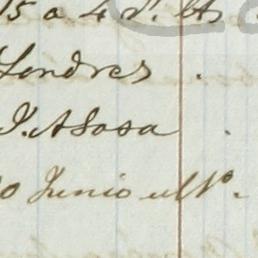 15 a 4 d.
Londres .
J. A Sosa .
10 Junio ult°.